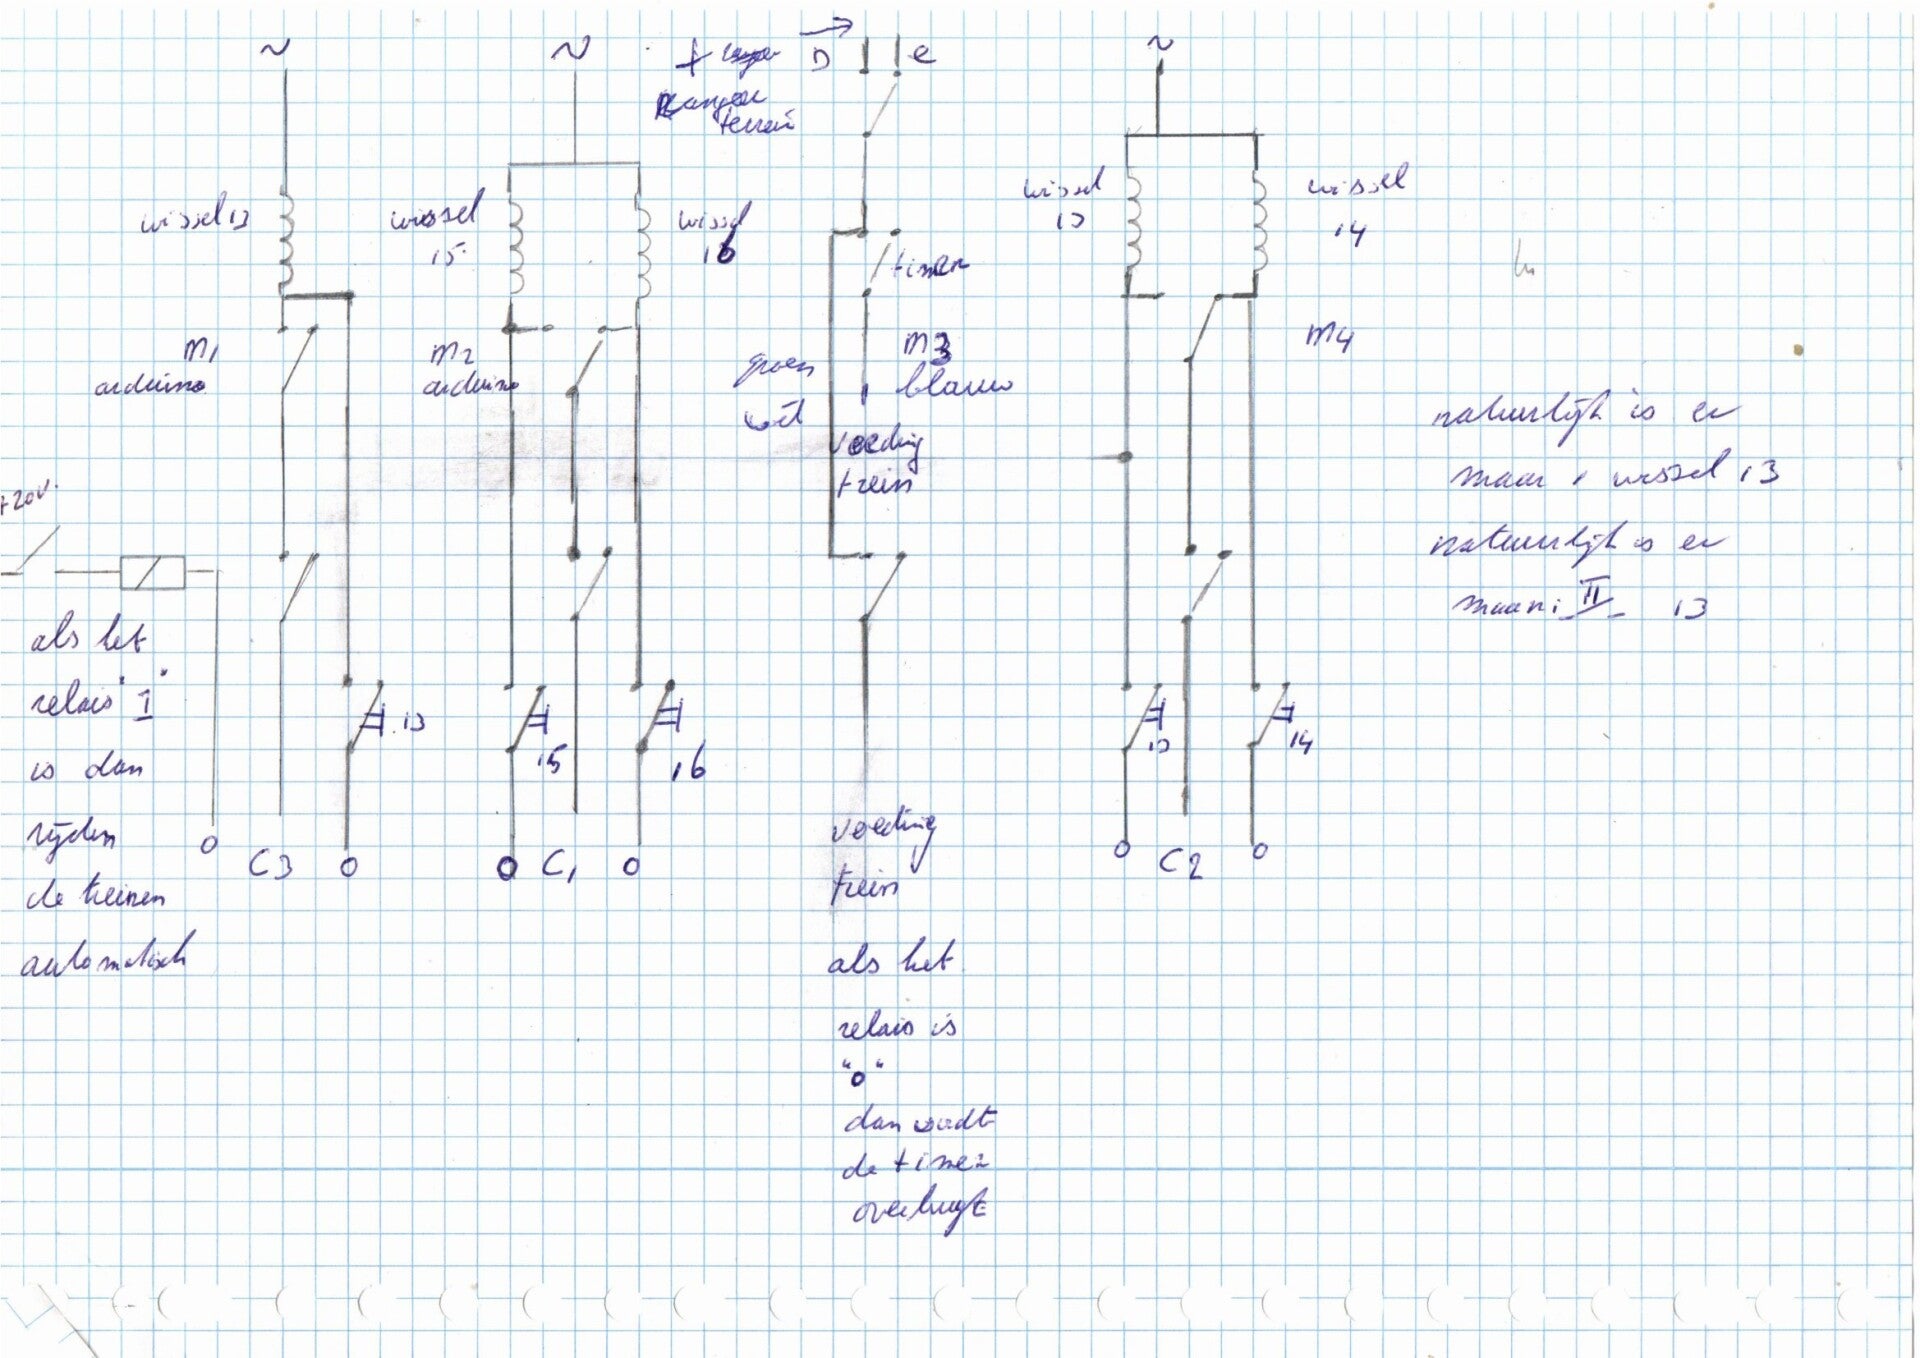 ~
~
+
D
e
Rangeer
terrein
~
wissel 13
wissel
15
wissel
16
timer
wissel
13
wissel
14
M1
arduino
M2
arduino
groen
wit
M3
blauw
M4
voeding
trein
natuurlijk is er
maar 1 wissel 13
natuurlijk is er
maar 1 II 13
+20V.
als het
relais "1"
is dan
rijden
de treinen
automatisch
13
15
16
13
14
0
C3
0
0
C1
0
voeding
trein
0
C2
0
als het
relais is
"0"
dan wordt
de timer
overbrugt